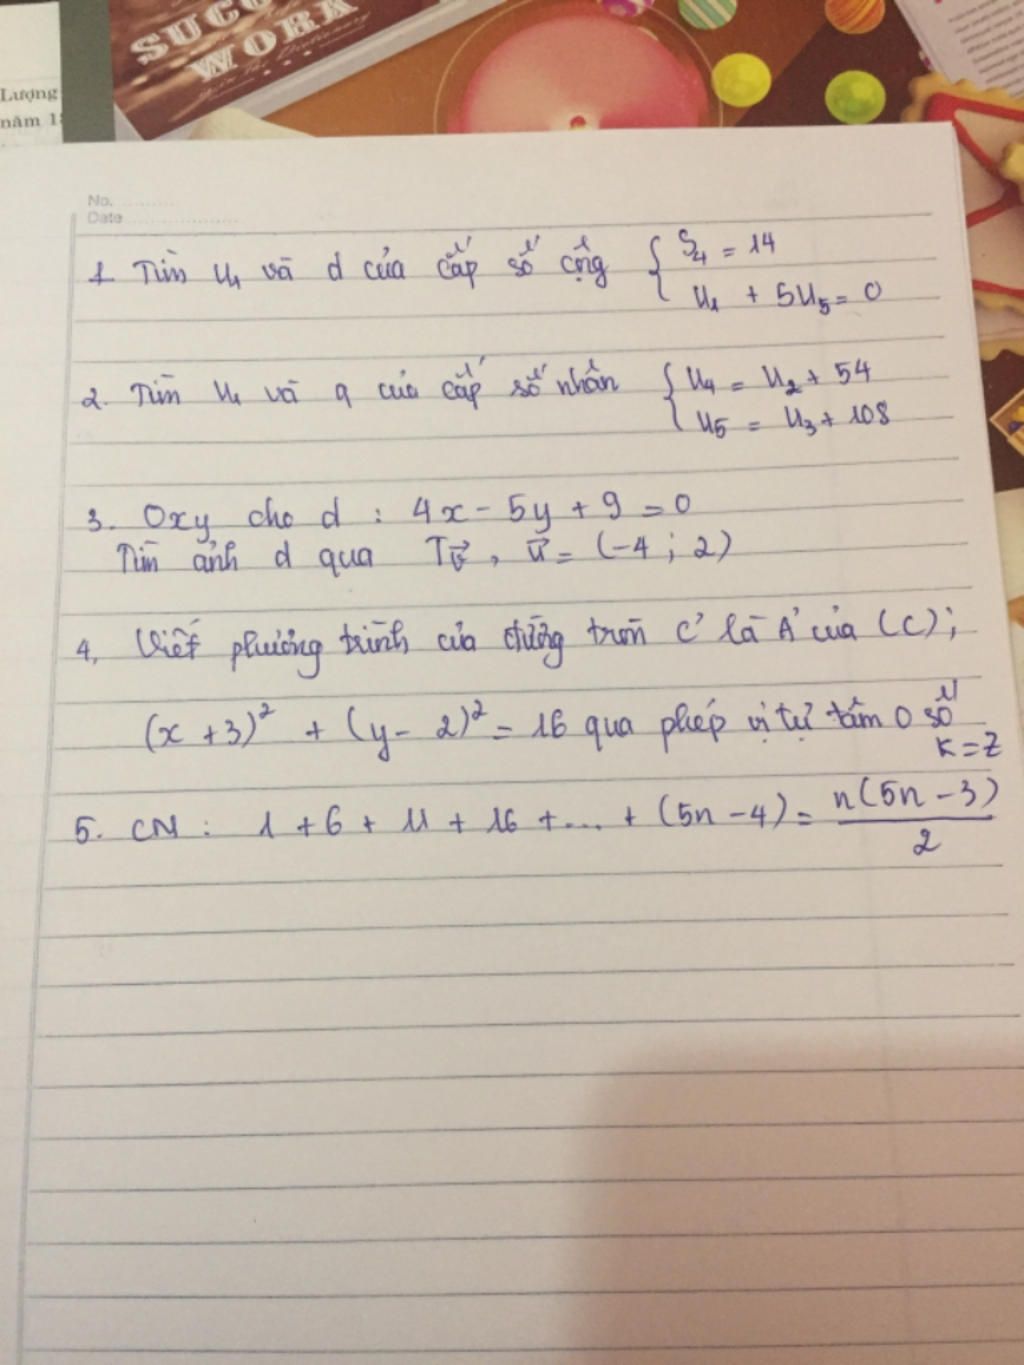 SUCC
WORK
Lượng
năm 18
No.
Date
1. Tìm u₁ và d của cấp số cộng { S₄ = 14
u₁ + 5u₅ = 0
2. Tìm u₁ và q của cấp số nhân { u₄ = u₂ + 54
u₅ = u₃ + 108
3. Oxy cho d : 4x - 5y + 9 = 0
Tìm ảnh d qua Tv⃗ , v⃗ = (-4 ; 2)
4, Viết phương trình của đường tròn C' là Ả của (C);
(x + 3)² + (y - 2)² = 16 qua phép vị tự tâm O số
k = 2
5. CM : 1 + 6 + 11 + 16 + ... + (5n - 4) = n(5n - 3)/2